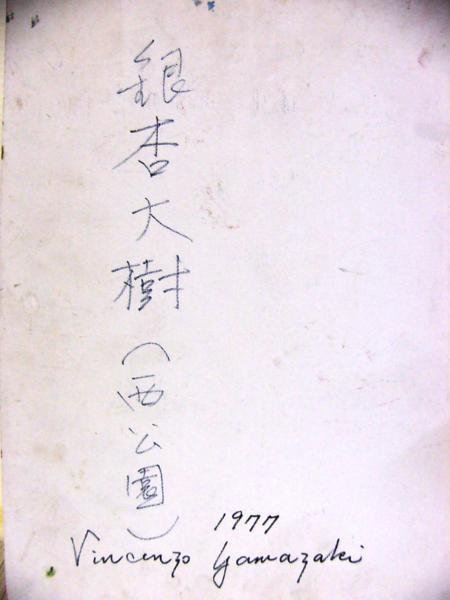 銀杏大樹(西公園)
1977
Vincenzo Yamazaki